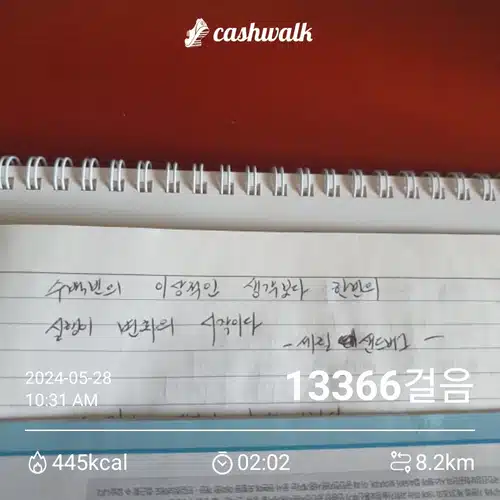 cashwalk
수백번의 이상적인 생각보다 한번의
실행이 변화의 시작이다
- 셰릴 샌드버그 -
2024-05-28
10:31 AM
13366걸음
445kcal
02:02
8.2km